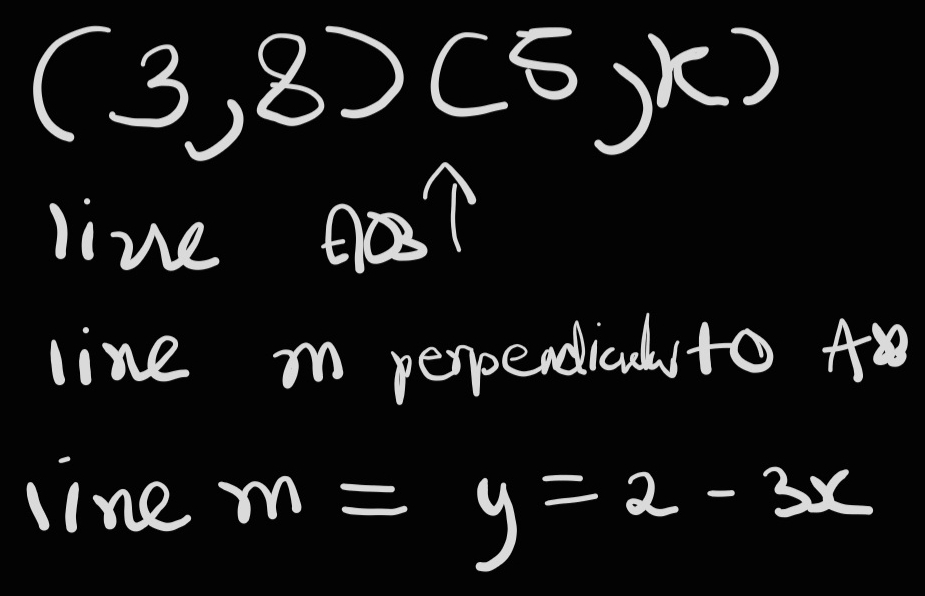 (3,8) (5,k)
line AB ↑
line m perpendicular to AB
line m = y = 2 - 3x